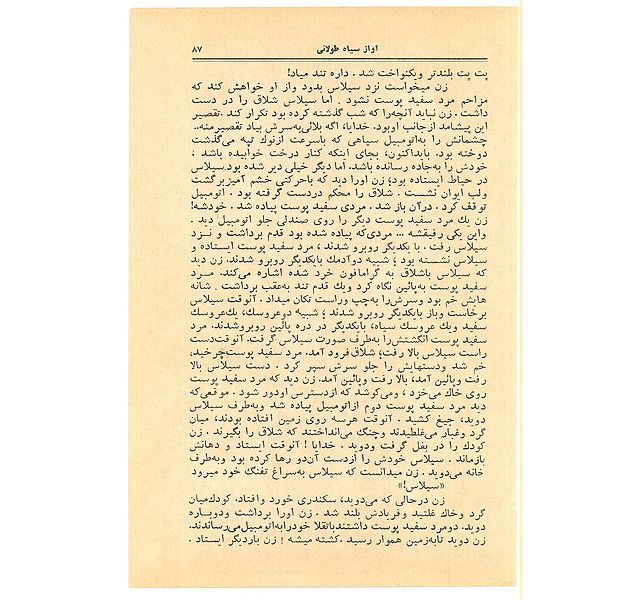 آواز سیاه طولانی
۸۷
پت پت بلندتر ویکنواخت شد . داره تند میاد!
زن میخواست نزد سیلاس بدود واز او خواهش کند که
مزاحم مرد سفید پوست نشود . اما سیلاس شلاق را در دست
داشت . زن نباید آنچه‌را که شب گذشته کرده بود تکرار کند .تقصیر
این پیشامد ازجانب اوبود. خدایا، اگه بلائی‌به‌سرش بیاد تقصیرمنه..
چشمانش را به‌اتومبیل سیاهی که باسرعت ازنوك تپه می‌گذشت
دوخته بود. بایداکنون، بجای اینکه کنار درخت خوابیده باشد ،
خودش را به‌جاده رسانده باشد. اما دیگر خیلی دیر شده بود.سیلاس
در حیاط ایستاده بود؛ زن اورا دید که باحرکتی خشم آمیزبرگشت
ولب ایوان نشست . شلاق را محکم دردست گرفته بود . اتومبیل
توقف کرد . درآن باز شد . مردی سفید پوست پیاده شد . خودشه!
زن یك مرد سفید پوست دیگر را روی صندلی جلو اتومبیل دید .
واین یکی رفیقشه ... مردی‌که پیاده شده بود قدم برداشت و نـزد
سیلاس رفت . با یکدیگر روبرو شدند ، مرد سفید پوست ایستاده و
سیلاس نشسته بود ؛ شبیه دوآدمك بایکدیگر روبرو شدند. زن دید
که سیلاس باشلاق به گرامافون خرد شده اشاره می‌کند. مـرد
سفید پوست به‌پائین نگاه کرد ویك قدم تند به‌عقب برداشت . شانه
هایش خم بود وسرش‌را به‌چپ وراست تکان میداد . آنوقت سیلاس
برخاست وباز بایکدیگر روبرو شدند ؛ شبیه دوعروسك، یك‌عروسك
سفید ویك عروسك سیاه، بایکدیگر در دره پائین روبروشدند. مرد
سفید پوست انگشتش‌را به‌طرف صورت سیلاس گرفت. آنوقت‌دست
راست سیلاس بالا رفت؛ شلاق فرود آمد. مرد سفید پوست‌چرخید،
خم شد ودستهایش را جلو سرش سپر کرد . دست سیلاس بالا
رفت وپائین آمد، بالا رفت وپائین آمد. زن دید که مرد سفید پوست
روی خاك می‌خزد ، ومی‌کوشد که ازدسترس اودور شود . موقعی‌که
دید مرد سفید پوست دوم ازاتومبیل پیاده شد وبه‌طرف سیلاس
دوید، جیغ کشید . آنوقت هرسه روی زمین افتاده بودند، میان
گرد وغبار می‌غلطیدند وچنگ می‌انداختند که شلاق را بگیرند . زن
کودك را در بغل گرفت ودوید . خدایا ! آنوقت ایستاد و دهانش
بازماند . سیلاس خودش را ازدست آن‌دو رها کرده بود وبه‌طرف
خانه می‌دوید . زن میدانست که سیلاس به‌سراغ تفنگ خود میرود
«سیلاس!»
زن درحالی که می‌دوید، سکندری خورد وافتاد. کودك‌میان
گرد وخاك غلتید وفریادش بلند شد . زن اورا برداشت ودوبـاره
دوید. دومرد سفید پوست داشتندباتقلا خودرابه‌اتومبیل‌می‌رساندند.
زن دوید تابه‌زمین هموار رسید .کشته میشه ! زن باردیگر ایستاد .